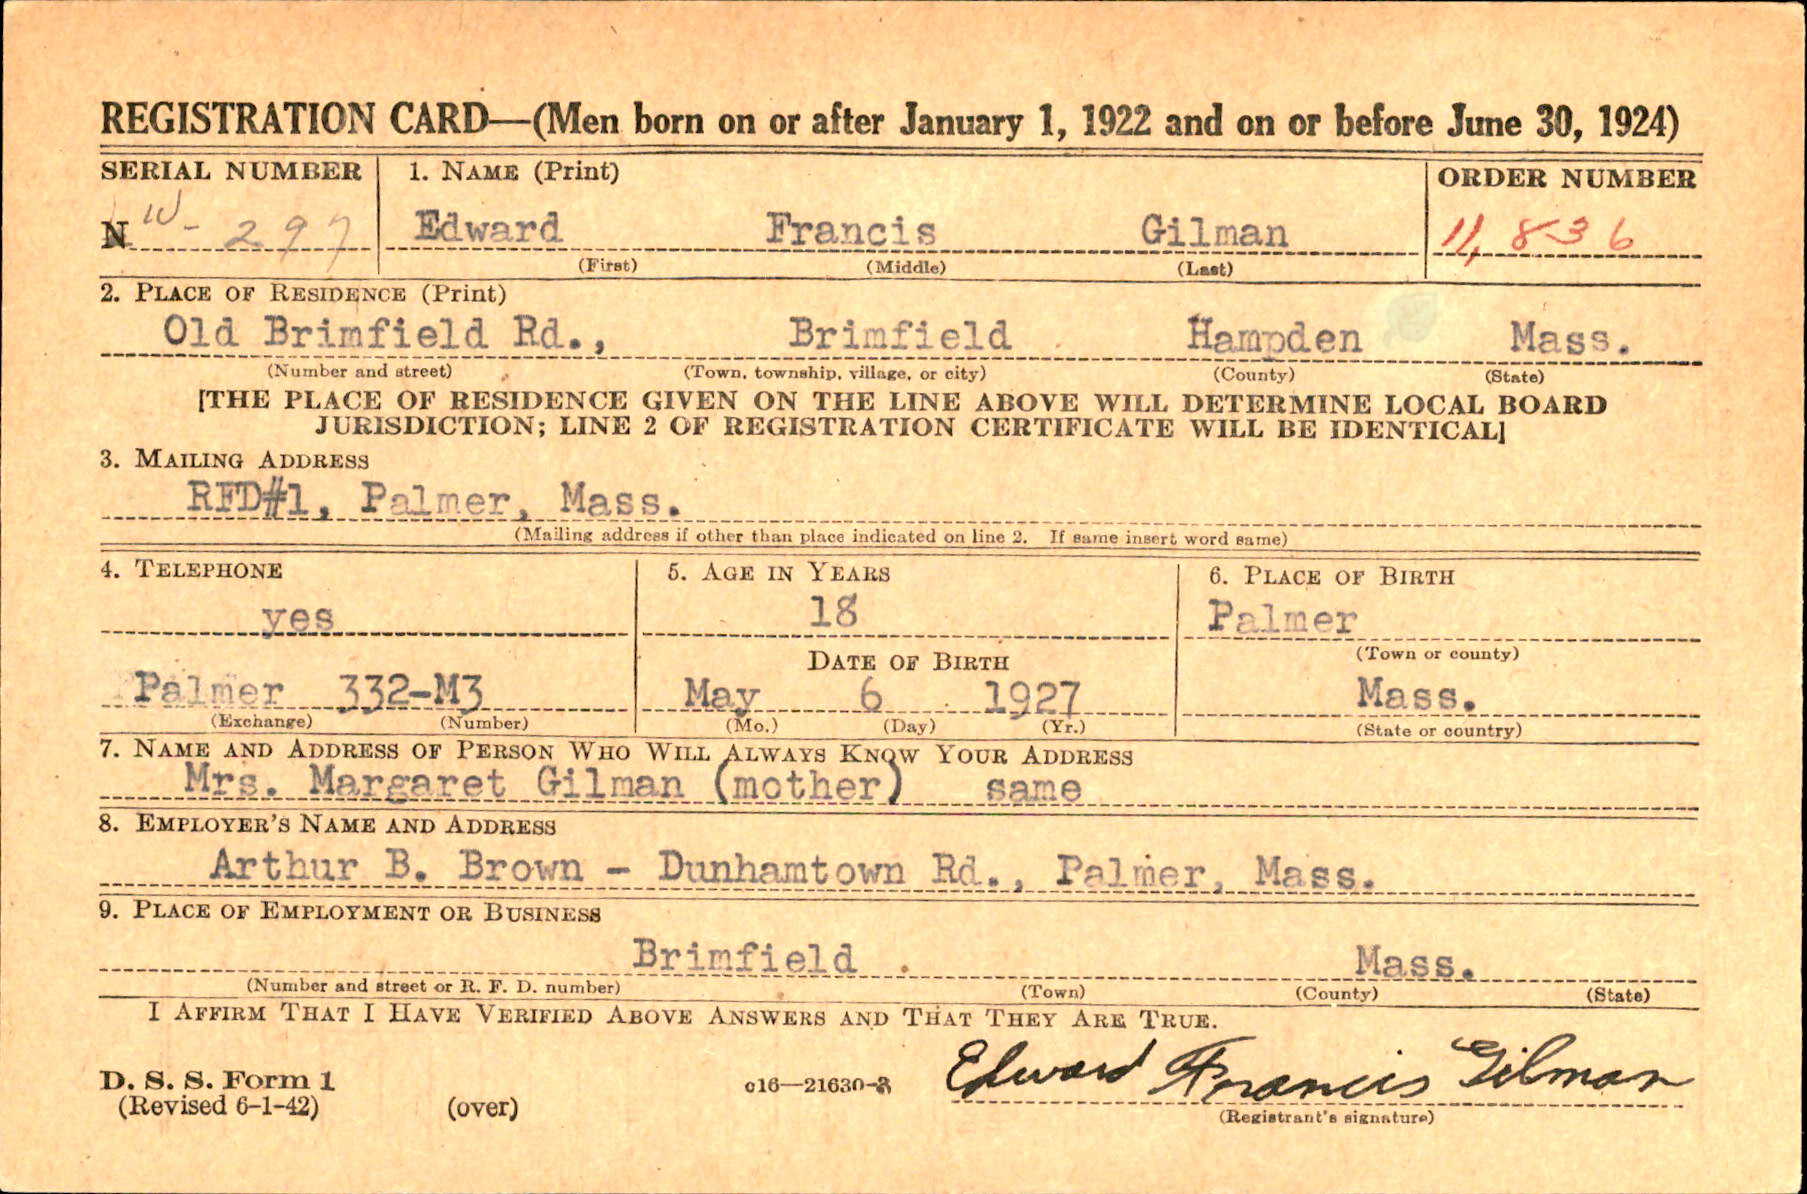 REGISTRATION CARD—(Men born on or after January 1, 1922 and on or before June 30, 1924)
SERIAL NUMBER 1. NAME (Print) ORDER NUMBER
N W-297 Edward Francis Gilman 11,836
(First) (Middle) (Last)
2. PLACE OF RESIDENCE (Print)
Old Brimfield Rd., Brimfield Hampden Mass.
(Number and street) (Town, township, village, or city) (County) (State)
[THE PLACE OF RESIDENCE GIVEN ON THE LINE ABOVE WILL DETERMINE LOCAL BOARD
JURISDICTION; LINE 2 OF REGISTRATION CERTIFICATE WILL BE IDENTICAL]
3. MAILING ADDRESS
RFD#1, Palmer, Mass.
(Mailing address if other than place indicated on line 2. If same insert word same)
4. TELEPHONE 5. AGE IN YEARS 6. PLACE OF BIRTH
yes 18 Palmer
DATE OF BIRTH (Town or county)
Palmer 332-M3 May 6 1927 Mass.
(Exchange) (Number) (Mo.) (Day) (Yr.) (State or country)
7. NAME AND ADDRESS OF PERSON WHO WILL ALWAYS KNOW YOUR ADDRESS
Mrs. Margaret Gilman (mother) same
8. EMPLOYER'S NAME AND ADDRESS
Arthur B. Brown - Dunhamtown Rd., Palmer, Mass.
9. PLACE OF EMPLOYMENT OR BUSINESS
Brimfield Mass.
(Number and street or R. F. D. number) (Town) (County) (State)
I AFFIRM THAT I HAVE VERIFIED ABOVE ANSWERS AND THAT THEY ARE TRUE.
D. S. S. Form 1 c16—21630-3 Edward Francis Gilman
(Revised 6-1-42) (over) (Registrant's signature)